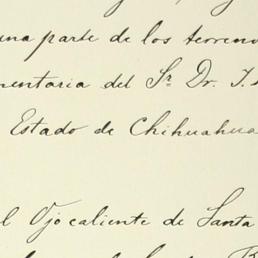 una parte de los terreno
mentaria del Sr. Dr. I.
Estado de Chihuahua
l Ojo caliente de Santa